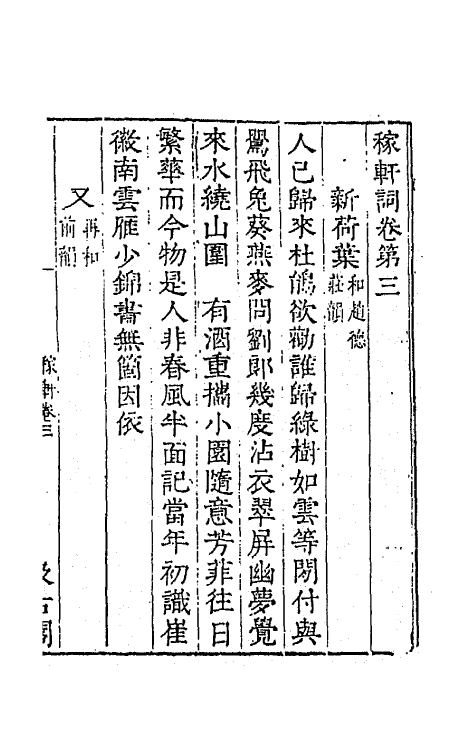 稼軒詞卷第三
新荷葉和趙德莊韻
人已歸來杜鵑欲勸誰歸綠樹如雲等閒付與
鶯飛兔葵燕麥問劉郎幾度沾衣翠屏幽夢覺
來水繞山圍　有酒重攜小園隨意芳菲往日
繁華而今物是人非春風半面記當年初識崔
徽南雲雁少錦書無箇因依
又再和前韻
稼軒卷三
汲古閣